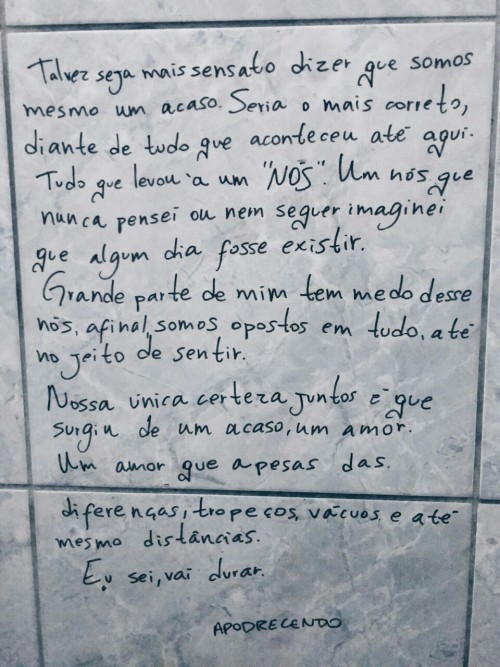 Talvez seja mais sensato dizer que somos
mesmo um acaso. Seria o mais correto,
diante de tudo que aconteceu até aqui.
Tudo que levou à um "NÓS". Um nós que
nunca pensei ou nem sequer imaginei
que algum dia fosse existir.
Grande parte de mim tem medo desse
nós, afinal, somos opostos em tudo, até
no jeito de sentir.
Nossa única certeza juntos é que
surgiu de um acaso, um amor.
Um amor que apesas das.
diferenças, tropeços, vácuos, e até
mesmo distâncias.
Eu sei, vai durar.
APODRECENDO